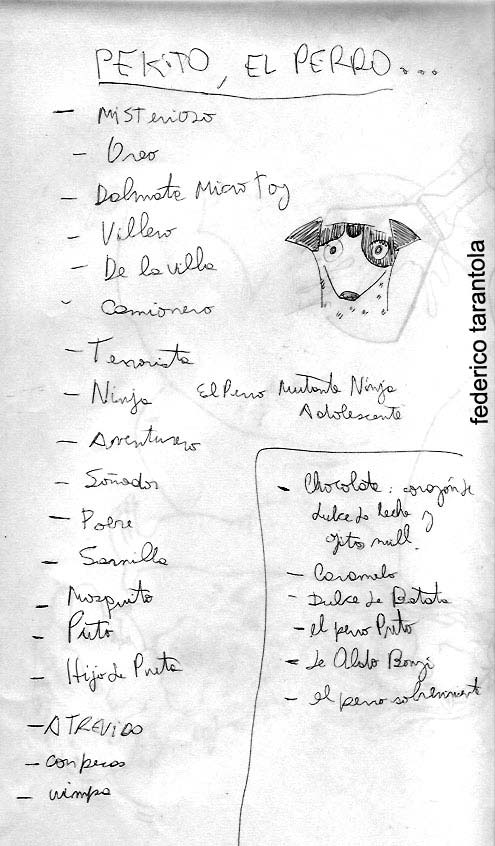 PEKITO, EL PERRO...
- Misterioso
- Oreo
- Dalmata Micro toy
- Villero
- De la villa
- Camionero
- Terrorista
- Ninja El Perro Mutante Ninja
Adolescente
- Aventurero
- Soñador
- Pobre
- Sarnilla
- Mosquito
- Prito
- Hijo de Prieta
- ATREVIDO
- con pecas
- 
- Chocolate: corazón de
dulce de leche y
- Caramelo
- Dulce de Batata
- el perro Prito
- de Aldo Bonzi
- el perro
federico tarantola